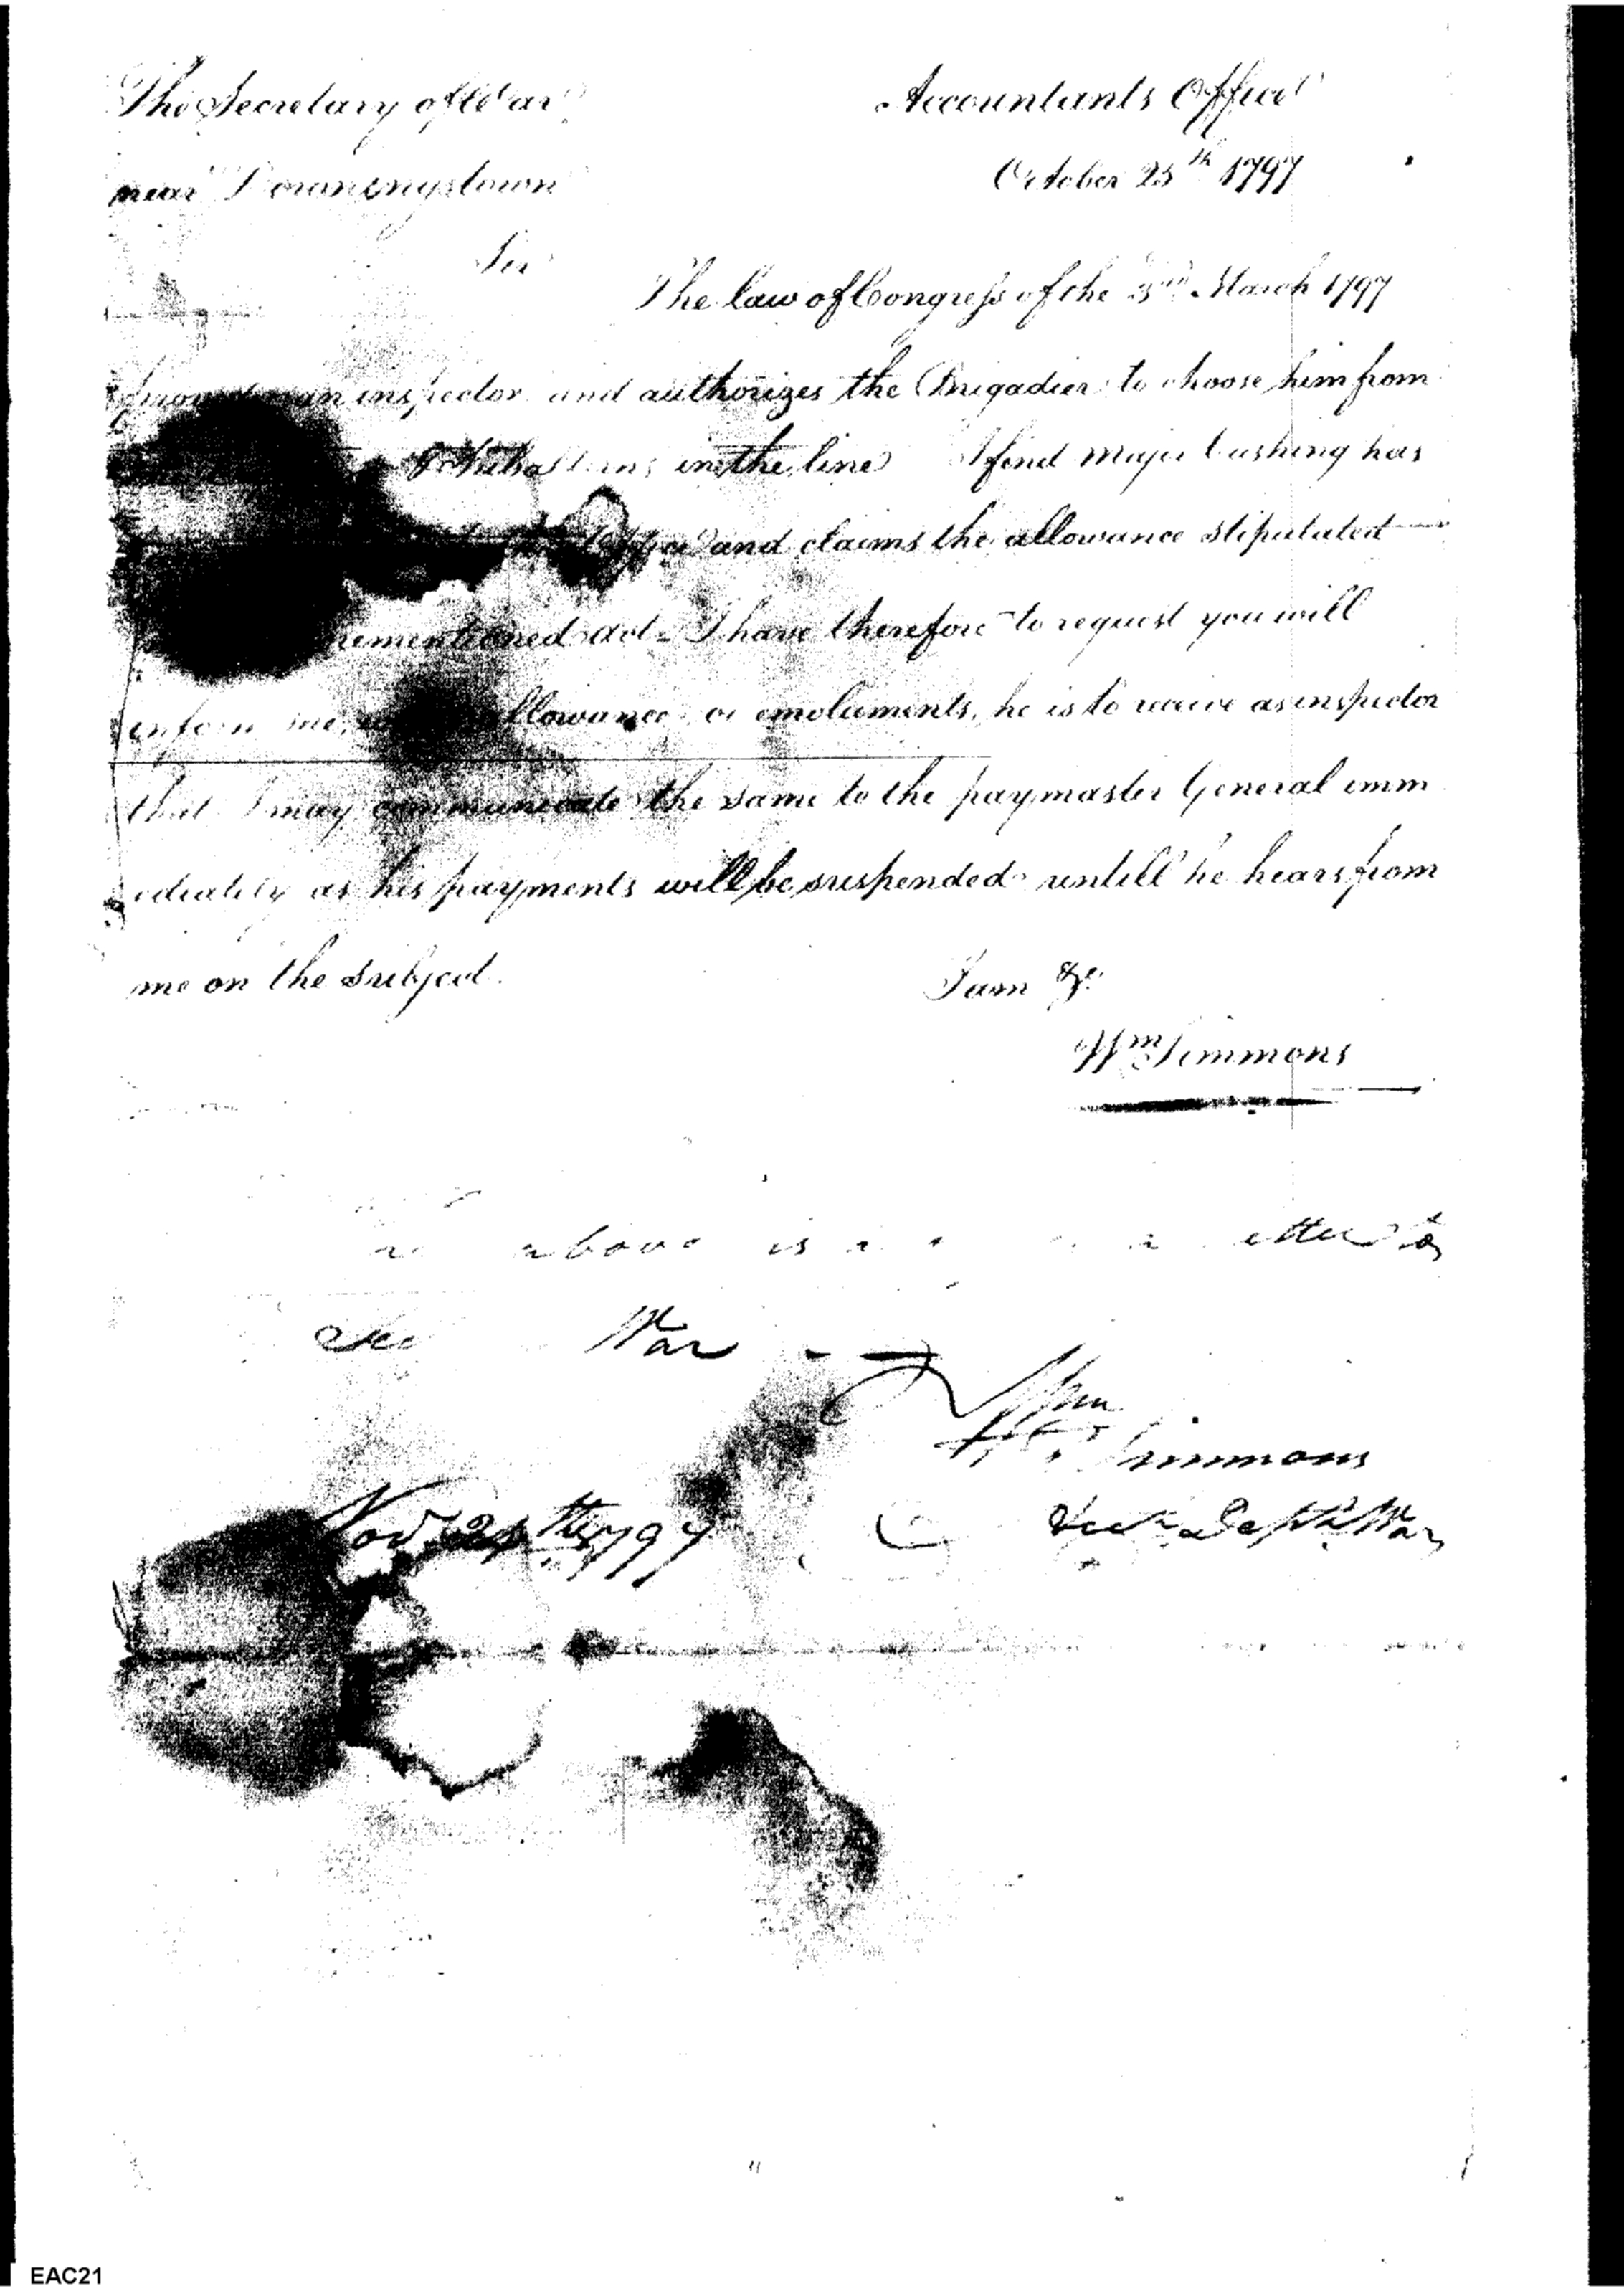 The Secretary of War
near Downingstown
Accountants Office
October 25th 1797
Sir
The law of Congress of the 3rd March 1797
an inspector and authorizes the Brigadier to choose him from
in the line I find Major Cushing has
and claims the allowance stipulated
rementioned act - I have therefore to request you will
inform me, allowance or emoluments, he is to receive as inspector
that I may communicate the same to the paymaster General imm
ediately as his payments will be suspended untill he hears from
me on the subject.
I am &c.
Wm Simmons
above is a etter to
War
Wm Simmons
Acct. Dept. War
Nov 24th 1797
EAC21